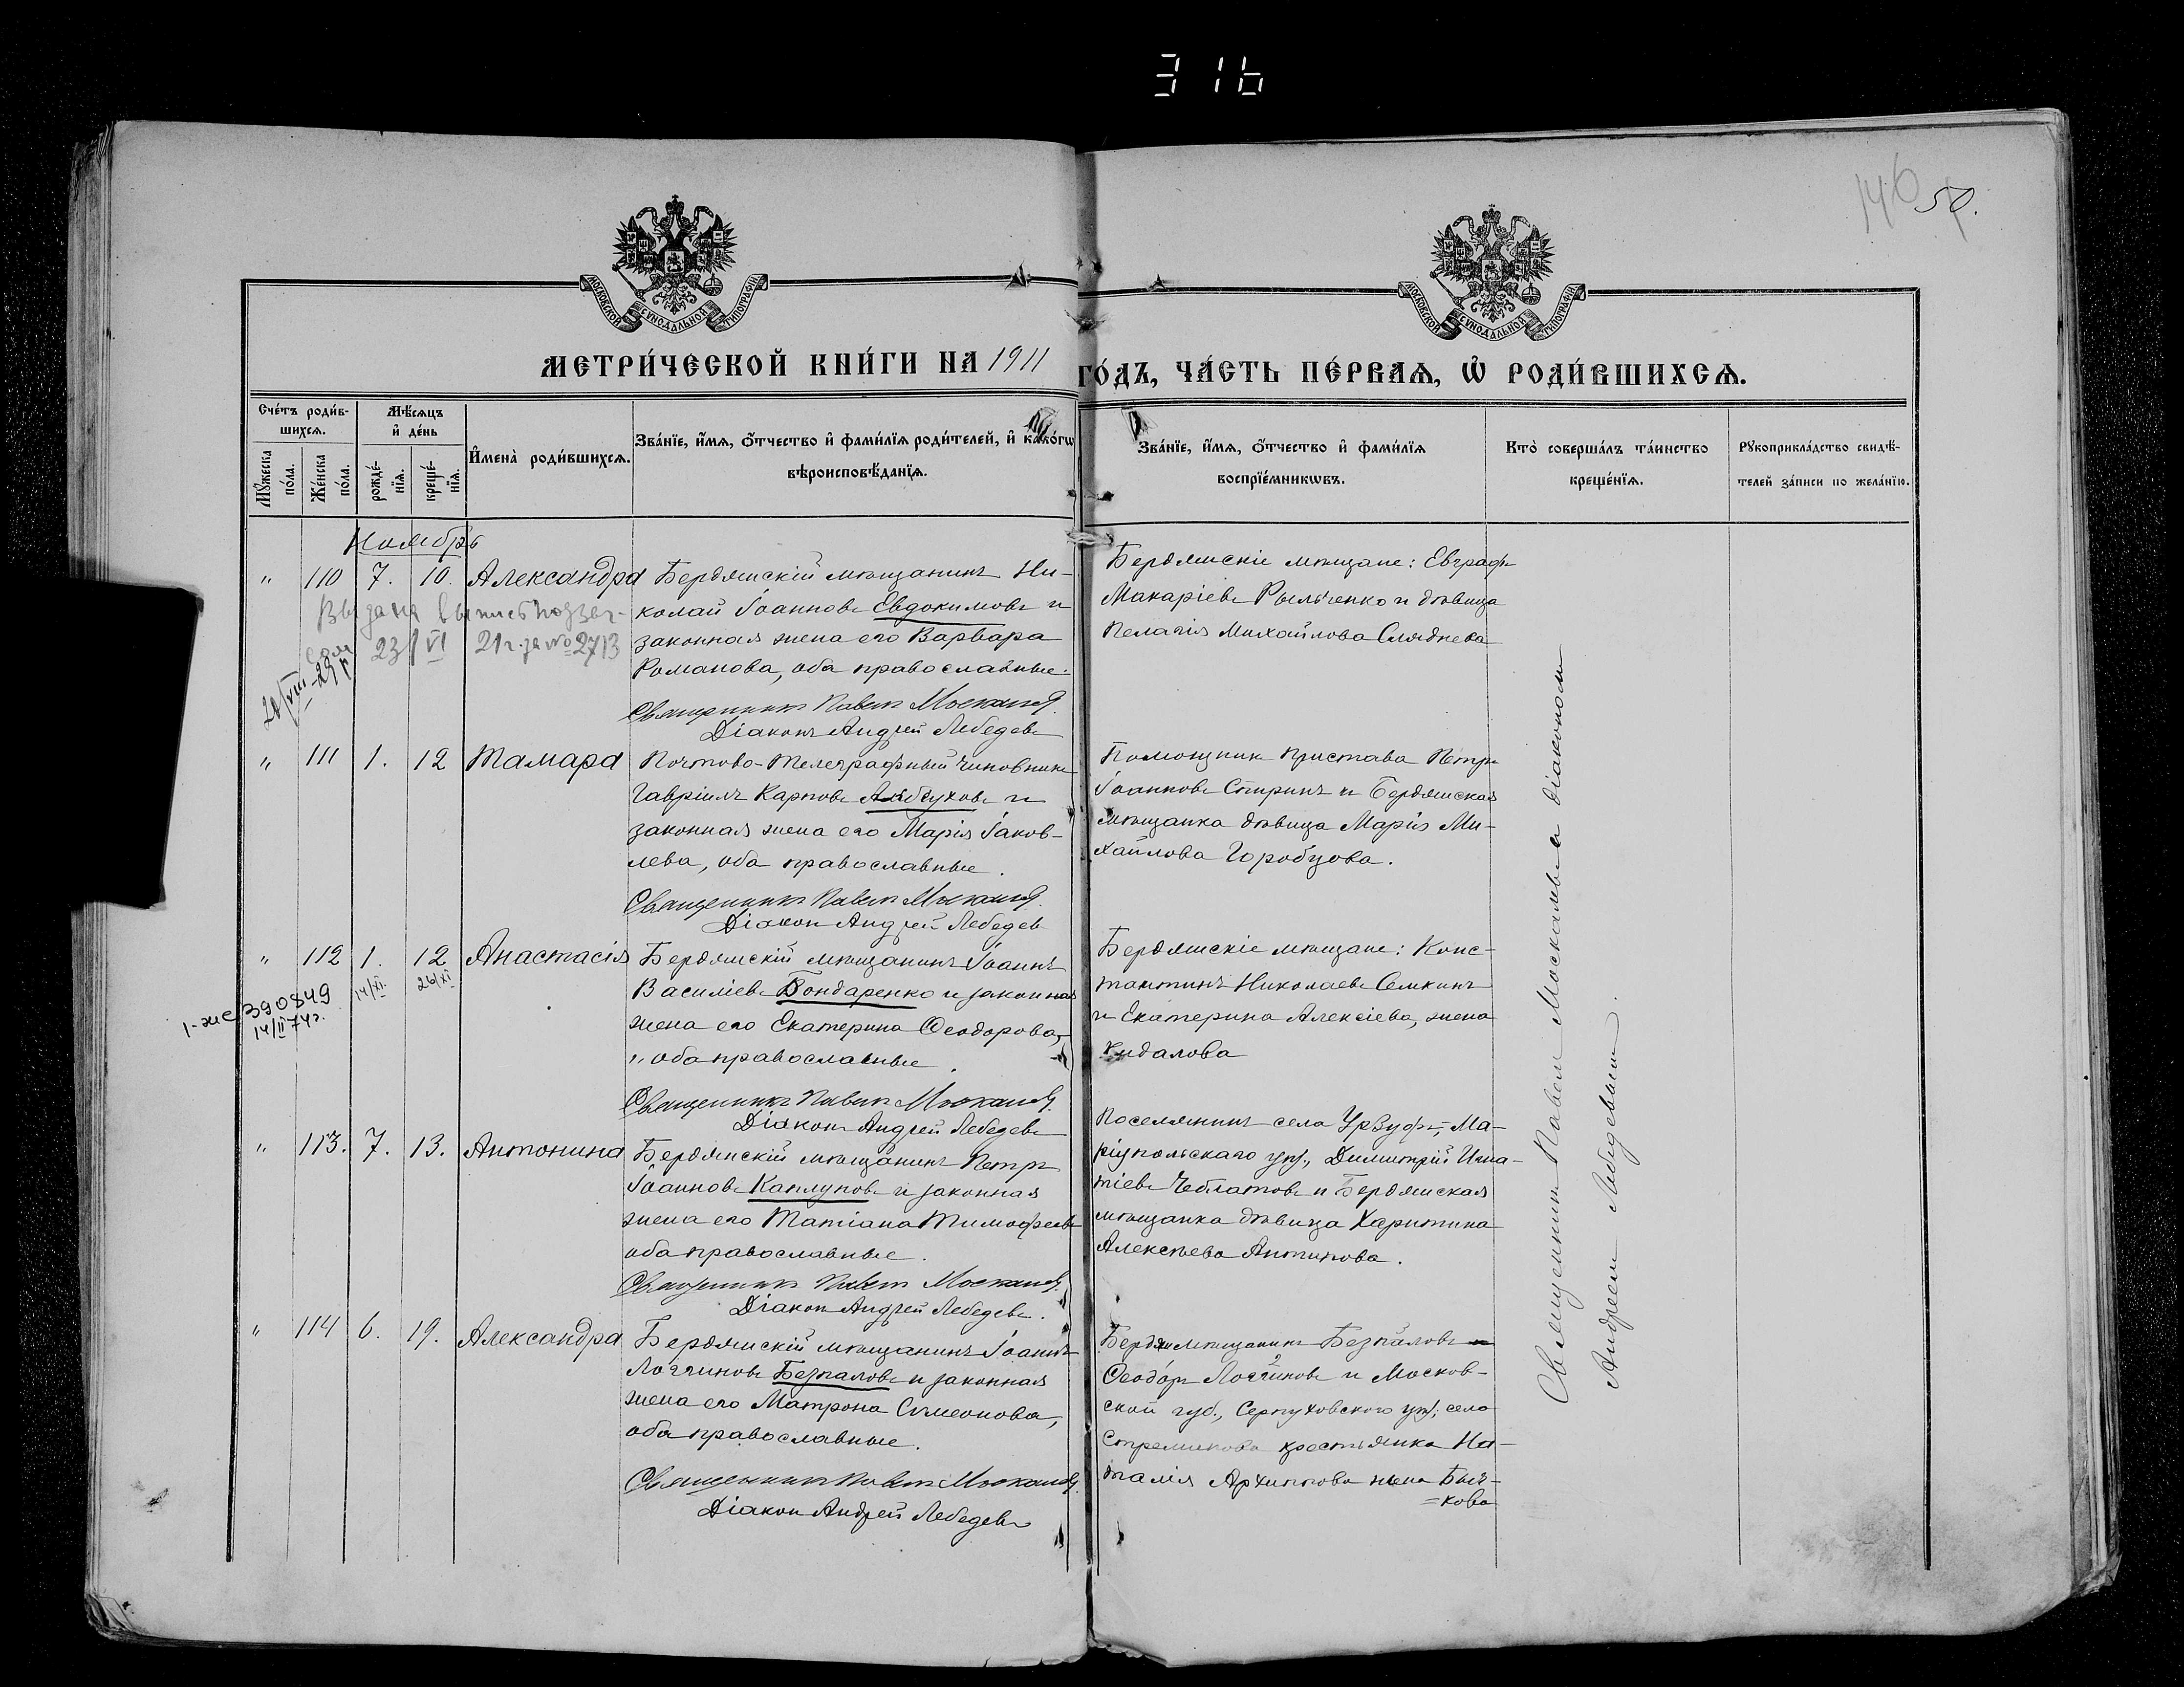 316
146 50.
МОСКОВСКОЙ СѴНОДАЛЬНОЙ ТИПОГРАФІИ
МОСКОВСКОЙ СѴНОДАЛЬНОЙ ТИПОГРАФІИ
МЕТРИ́ЧЕСКОЙ КНИ́ГИ НА 1911 ГО́ДЪ, ЧА́СТЬ ПЕ́РВАЯ, Ѡ҆ РОДИ́ВШИХСЯ.
Сче́тъ роди́вшихся.
Мꙋ́жеска по́ла.
Же́нска по́ла.
Мѣ́сяцъ и҆ де́нь
рожде́нїя.
креще́нїя.
И҆мена̀ роди́вшихся.
Зва́нїе, и҆́мя, ѻ҆́тчество и҆ фами́лїя роди́телей, и҆ како́гѡ
вѣроисповѣ́данїя.
Зва́нїе, и҆́мя, ѻ҆́тчество и҆ фами́лїя
воспрїе́мникѡвъ.
Кто̀ соверша́лъ та́инство
креще́нїя.
Рꙋкоприкла́дство свидѣ́-
телей за́писи по жела́нїю.
Ноябрь
" 110 7. 10. Александра
Бердянскій мѣщанинъ Ни-
колай Іоанновъ Евдокимовъ и
законная жена его Варвара
Романова, оба православные.
Священникъ Павелъ Москалевъ
Діаконъ Андрей Лебедевъ
Бердянскіе мѣщане: Евграфъ
Макаріевъ Рыльченко и дѣвица
Пелагія Михайлова Сляднева
Выдана выпись
23/VI 21 г. за № 2713
" 111 1. 12 Тамара
Почтово-Телеграфный чиновникъ
Гавріилъ Карповъ и
законная жена его Марія Іаков-
лева, оба православные.
Священникъ Павелъ Москалевъ
Діаконъ Андрей Лебедевъ
Помощникъ Пристава Петръ
Іоанновъ Спиринъ и Бердянская
мѣщанка дѣвица Марія Ми-
хайлова Горобцова.
" 112 1. 12 Анастасія
14/XI. 26/XI
1-же 390849
14/II 74г.
Бердянскій мѣщанинъ Іоаннъ
Василіевъ Бондаренко и законная
жена его Екатерина Ѳеодорова,
" оба православные.
Священникъ Павелъ Москалевъ
Діаконъ Андрей Лебедевъ
Бердянскіе мѣщане: Конс-
тантинъ Николаевъ Семкинъ
и Екатерина Алексіева, жена
Кидалова
" 113. 7. 13. Антонина
Бердянскій мѣщанинъ Петръ
Іоанновъ Каплуновъ и законная
жена его Татіана Тимофеева
оба православные.
Священникъ Павелъ Москалевъ
Діаконъ Андрей Лебедевъ.
Поселянинъ села Урзуфъ, Ма-
ріупольскаго уѣз., Димитрій Игна-
тіевъ и Бердянская
мѣщанка дѣвица Харитина
Алексѣева Антипова.
" 114 6. 19. Александра
Бердянскій мѣщанинъ Іоаннъ
Логгиновъ Безпаловъ и законная
жена его Матрона Симеонова,
оба православные.
Священникъ Павелъ Москалевъ
Діаконъ Андрей Лебедевъ
мѣщанинъ Безпаловъ
Ѳеодоръ Логгиновъ и Москов-
ской губ., Серпуховского уѣз., села
крестьянка На-
талія Архиппова жена Быч-
=кова
Священникъ Павелъ Москалевъ и діакономъ
Андреемъ Лебедевымъ.